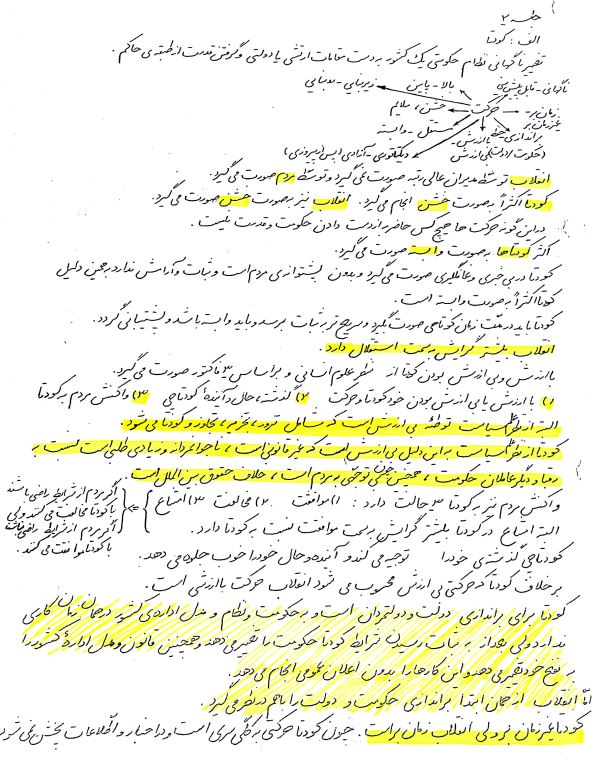 جلسه ۲
الف: کودتا
تغییر ناگهانی نظام حکومتی یک کشور به دست مقامات ارتشی یا دولتی و گرفتن قدرت از طبقه ی حاکم.
ناگهانی - قابل پیش بینی
بالا - پایین
زیربنایی - روبنایی
زمان بر - غیر زمان بر
حرکت
خشن، ملایم
براندازی (حکومت/دولت)
با ارزش - بی ارزش
مستقل - وابسته
دیکتاتوری - آزادی (پس از پیروزی)
انقلاب توسط مدیران عالی رتبه صورت نمی گیرد و توسط مردم صورت می گیرد.
کودتا اکثراً به صورت خشن انجام می گیرد. انقلاب نیز به صورت خشن صورت می گیرد.
در این گونه حرکت ها هیچ کس حاضر به از دست دادن حکومت و قدرت نیست.
اکثر کودتاها به صورت وابسته صورت می گیرد.
کودتا در بی خبری و غافلگیری صورت می گیرد و بدون پشتوانه ی مردم است و ثبات و آرامش ندارد به همین دلیل
کودتا اکثراً به صورت وابسته است.
کودتا باید در مدت زمان کوتاهی صورت بگیرد و سریع تر به ثبات برسد و باید وابسته باشد و پشتیبانی گردد.
انقلاب بیشتر گرایش به سمت استقلال دارد.
با ارزش و بی ارزش بودن کودتا از منظر علوم انسانی و بر اساس ۳ فاکتور صورت می گیرد.
۱) با ارزش یا بی ارزش بودن خود کودتا و حرکت ۲) گذشته، حال و آینده ی کودتاچی ۳) واکنش مردم به کودتا
البته از نظر سیاست توطئه بی ارزش است که شامل ترور، تجزیه، تجاوز و کودتا می شود.
کودتا از نظر سیاست به این دلیل بی ارزش است که غیر قانونی است، ناجوانمردانه و زیاده طلبی است نسبت به
رقبا و دیگر عاملان حکومت، همچنین بی توجهی به مردم است، خلاف حقوق بین الملل است.
واکنش مردم نیز به کودتا ۳ حالت دارد: ۱) موافقت ۲) مخالفت ۳) امتناع
اگر مردم از شرایط راضی باشند با کودتا مخالفت می کنند ولی اگر مردم از شرایط راضی نباشند با کودتا موافقت می کنند.
البته امتناع در کودتا بیشتر گرایش به سمت موافقت نسبت به کودتا دارد.
کودتاچی گذشته ی خود را توجیه می کند و آینده و حال خود را خوب جلوه می دهد.
بر خلاف کودتا که حرکتی بی ارزش محسوب می شود انقلاب حرکت با ارزشی است.
کودتا برای براندازی دولت و دولتمردان است و به حکومت و نظام و مدل اداره ی کشور در همان زمان کاری
ندارد ولی بعد از به ثبات رسیدن شرایط کودتا حکومت را تغییر می دهد و همچنین قانون و مدل اداره ی کشور را
به نفع خود تغییر می دهد و این کارها را بدون اعلان عمومی انجام می دهد.
امّا انقلاب از همان ابتدا براندازی حکومت و دولت را با هم در نظر می گیرد.
کودتا غیر زمان بر ولی انقلاب زمان بر است. چون کودتا حرکتی به کلی سری است و در اخبار و اطلاعات پخش نمی شود